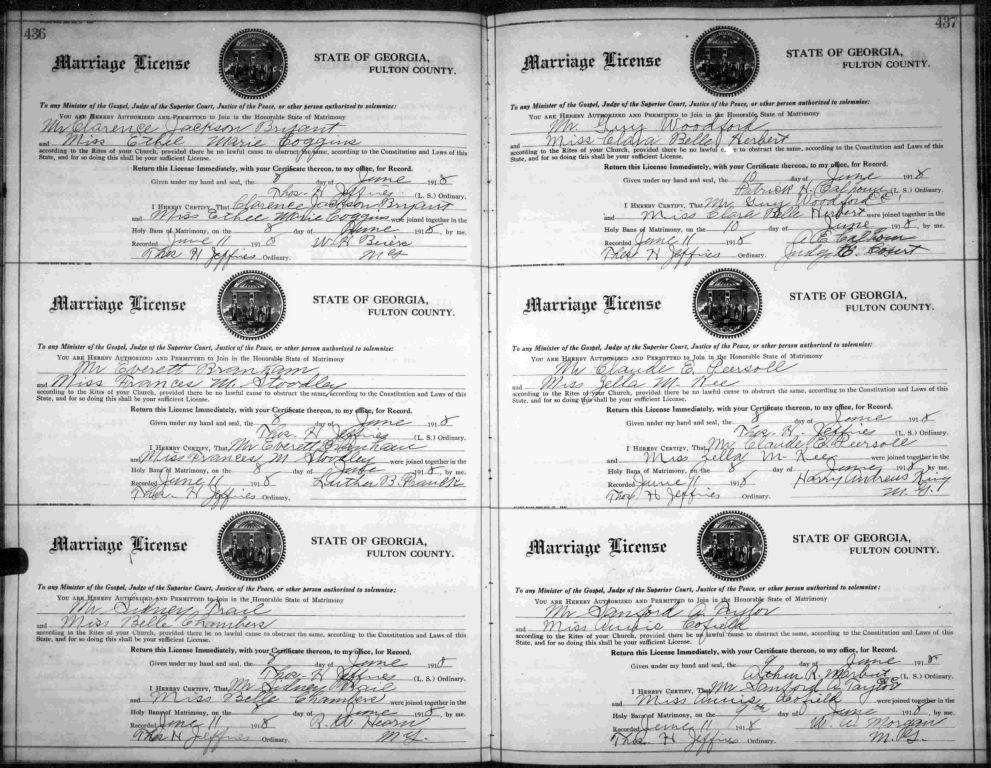 436
Marriage License
STATE OF GEORGIA,
FULTON COUNTY.
To any Minister of the Gospel, Judge of the Superior Court, Justice of the Peace, or other person authorized to solemnize:
YOU ARE HEREBY AUTHORIZED AND PERMITTED to Join in the Honorable State of Matrimony
Mr Clarence Jackson Bryant
and Miss Ethel Marie Coggins
according to the Rites of your Church, provided there be no lawful cause to obstruct the same, according to the Constitution and Laws of this
State, and for so doing this shall be your sufficient License.
Return this License Immediately, with your Certificate thereon, to my office, for Record.
Given under my hand and seal, the 8 day of June 1918
Thos. H Jeffries (L. S.) Ordinary.
I HEREBY CERTIFY, That Clarence Jackson Bryant
and Miss Ethel Marie Coggins were joined together in the
Holy Bans of Matrimony, on the 8 day of June 1918, by me.
Recorded June 11 1918 W. H.
Thos H Jeffries Ordinary. M G
Marriage License
STATE OF GEORGIA,
FULTON COUNTY.
To any Minister of the Gospel, Judge of the Superior Court, Justice of the Peace, or other person authorized to solemnize:
YOU ARE HEREBY AUTHORIZED AND PERMITTED to Join in the Honorable State of Matrimony
Mr Everett Branham
and Miss Frances M. Stoodley
according to the Rites of your Church, provided there be no lawful cause to obstruct the same, according to the Constitution and Laws of this
State, and for so doing this shall be your sufficient License.
Return this License Immediately, with your Certificate thereon, to my office, for Record.
Given under my hand and seal, the 8 day of June 1918
Thos. H Jeffries (L. S.) Ordinary.
I HEREBY CERTIFY, That Mr Everett Branham
and Miss Frances M Stoodley were joined together in the
Holy Bans of Matrimony, on the 8 day of June 1918, by me.
Recorded June 11 1918 Luther B. Franck
Thos H Jeffries Ordinary.
Marriage License
STATE OF GEORGIA,
FULTON COUNTY.
To any Minister of the Gospel, Judge of the Superior Court, Justice of the Peace, or other person authorized to solemnize:
YOU ARE HEREBY AUTHORIZED AND PERMITTED to Join in the Honorable State of Matrimony
Mr Sidney Trail
and Miss Belle Chambers
according to the Rites of your Church, provided there be no lawful cause to obstruct the same, according to the Constitution and Laws of this
State, and for so doing this shall be your sufficient License.
Return this License Immediately, with your Certificate thereon, to my office, for Record.
Given under my hand and seal, the 8 day of June 1918
Thos. H Jeffries (L. S.) Ordinary.
I HEREBY CERTIFY, That Mr Sidney Trail
and Miss Belle Chambers were joined together in the
Holy Bans of Matrimony, on the day of June 1918, by me.
Recorded June 11 1918 R. W. Hearn
Thos H Jeffries Ordinary. M G.
437
Marriage License
STATE OF GEORGIA,
FULTON COUNTY.
To any Minister of the Gospel, Judge of the Superior Court, Justice of the Peace, or other person authorized to solemnize:
YOU ARE HEREBY AUTHORIZED AND PERMITTED to Join in the Honorable State of Matrimony
Mr Guy Woodford
and Miss Clara Belle Herbert
according to the Rites of your Church, provided there be no lawful cause to obstruct the same, according to the Constitution and Laws of this
State, and for so doing this shall be your sufficient License.
Return this License Immediately, with your Certificate thereon, to my office, for Record.
Given under my hand and seal, the 10 day of June 1918
Patrick H. Calhoun (L. S.) Ordinary.
I HEREBY CERTIFY, That Mr. Guy Woodford
and Miss Clara Belle Herbert were joined together in the
Holy Bans of Matrimony, on the 10 day of June 1918, by me.
Recorded June 11 1918 A. E. Calhoun
Thos H Jeffries Ordinary. Judge
Marriage License
STATE OF GEORGIA,
FULTON COUNTY.
To any Minister of the Gospel, Judge of the Superior Court, Justice of the Peace, or other person authorized to solemnize:
YOU ARE HEREBY AUTHORIZED AND PERMITTED to Join in the Honorable State of Matrimony
Mr Claude E. Peersoll
and Miss Zella M. Kee
according to the Rites of your Church, provided there be no lawful cause to obstruct the same, according to the Constitution and Laws of this
State, and for so doing this shall be your sufficient License.
Return this License Immediately, with your Certificate thereon, to my office, for Record.
Given under my hand and seal, the 8 day of June 1918
Thos. H. Jeffries (L. S.) Ordinary.
I HEREBY CERTIFY, That Mr Claude E. Peersoll
and Miss Zella M Kee were joined together in the
Holy Bans of Matrimony, on the 8 day of June 1918, by me.
Recorded June 11 1918 Harry Andrews King
Thos H Jeffries Ordinary. M. G.
Marriage License
STATE OF GEORGIA,
FULTON COUNTY.
To any Minister of the Gospel, Judge of the Superior Court, Justice of the Peace, or other person authorized to solemnize:
YOU ARE HEREBY AUTHORIZED AND PERMITTED to Join in the Honorable State of Matrimony
Mr Sanford A Taylor
and Miss Annis Cofield
according to the Rites of your Church, provided there be no lawful cause to obstruct the same, according to the Constitution and Laws of this
State, and for so doing this shall be your sufficient License.
Return this License Immediately, with your Certificate thereon, to my office, for Record.
Given under my hand and seal, the 9 day of June 1918
Arthur R. (L. S.) Ordinary.
I HEREBY CERTIFY, That Mr Sanford A Taylor
and Miss Annis Cofield were joined together in the
Holy Bans of Matrimony, on the 9th day of June 1918, by me.
Recorded June 11 1918 W. A. Morgan
Thos. H Jeffries Ordinary. M. G.